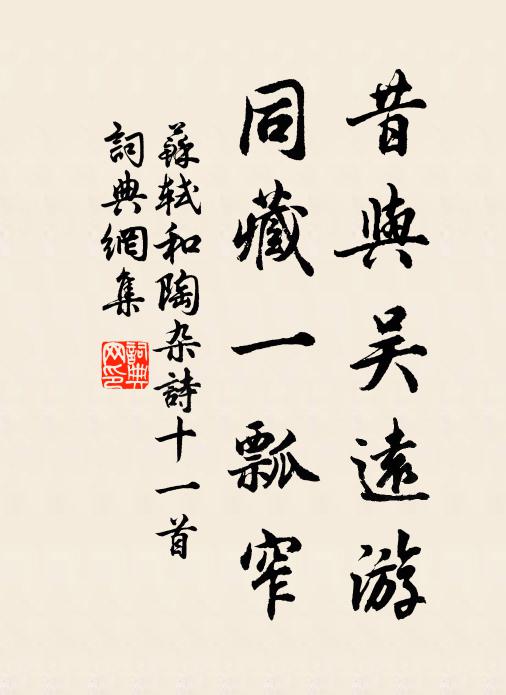 昔與吴遠游
同藏一瓢窄
蘇轼和陶杂詩十一首
詞典網集
詞典网印